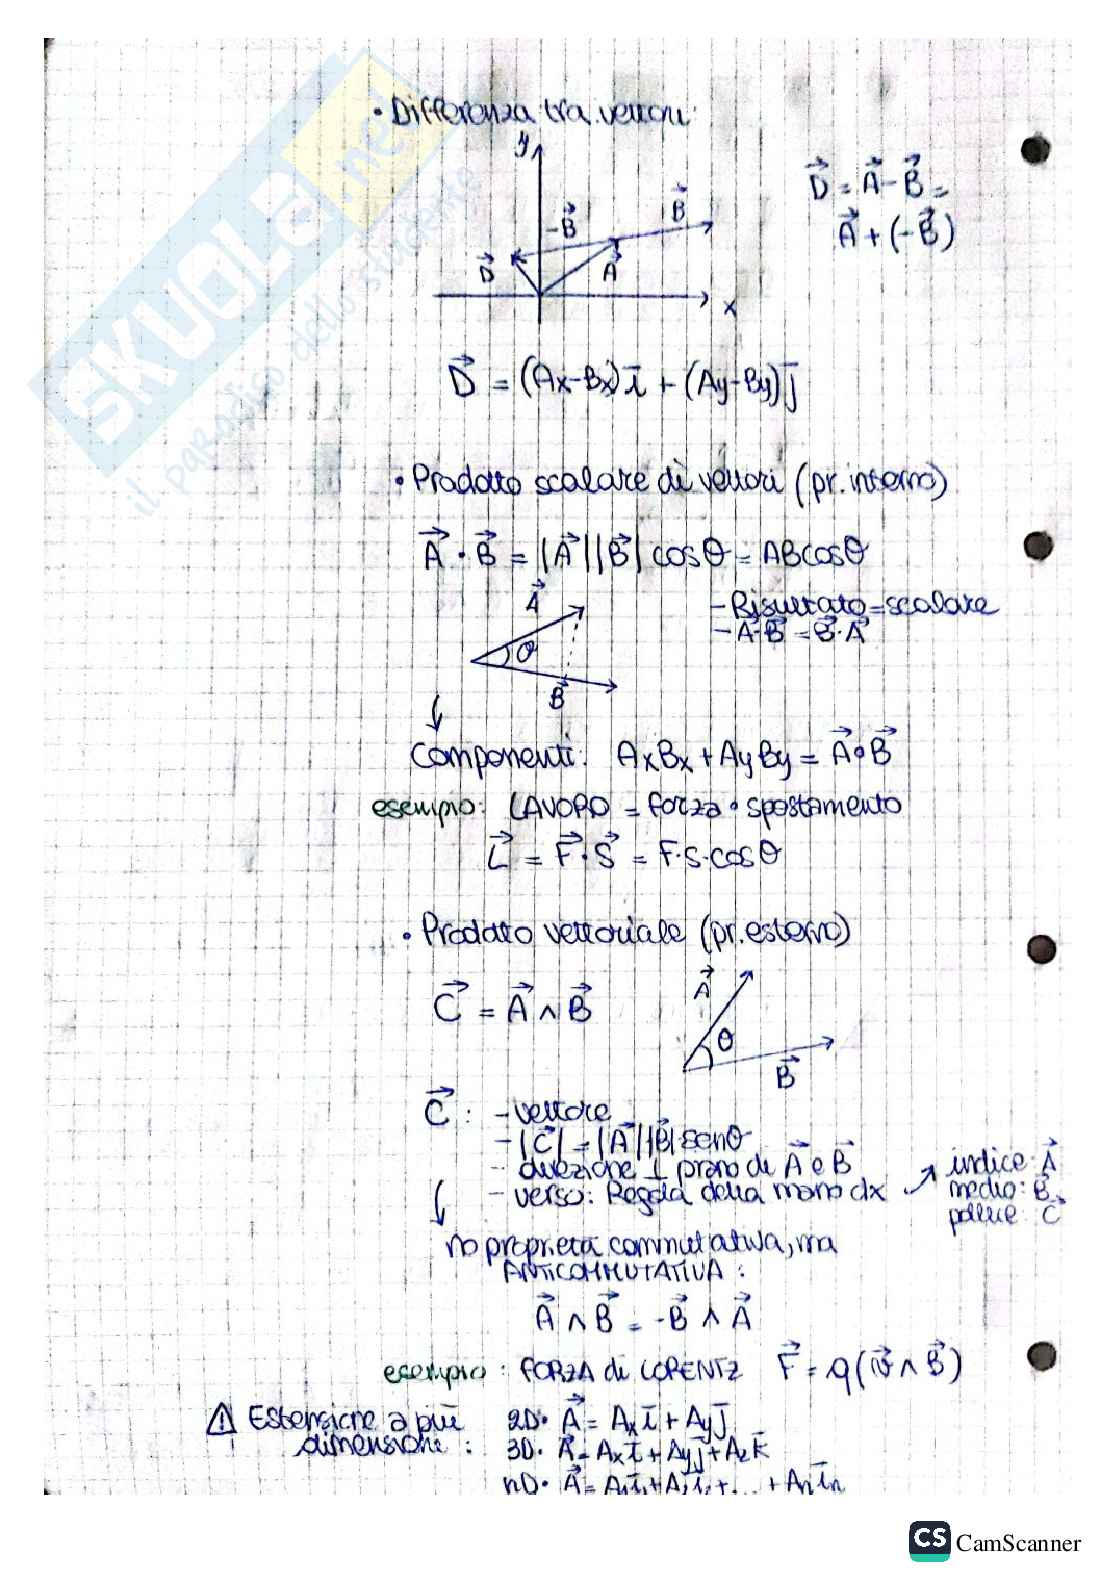 • Differenza tra vettori:
y
B⃗
-B⃗
D⃗
A⃗
x
D⃗ = A⃗ - B⃗ =
A⃗ + (-B⃗)
D⃗ = (Ax-Bx)i̅ + (Ay-By)j̅
• Prodotto scalare di vettori (pr. interno)
A⃗ · B⃗ = |A⃗||B⃗| cosθ = ABcosθ
A⃗
θ
B⃗
- Risultato = scalare
- A⃗·B⃗ = B⃗·A⃗
Componenti: AxBx + AyBy = A⃗ ∘ B⃗
esempio: LAVORO = forza • spostamento
L⃗ = F⃗·S⃗ = F·S·cosθ
• Prodotto vettoriale (pr. esterno)
C⃗ = A⃗ ∧ B⃗
A⃗
θ
B⃗
C⃗ : - vettore
- |C⃗| = |A⃗||B⃗| senθ
- direzione ⊥ piano di A⃗ e B⃗
- verso: Regola della mano dx ↗
indice: A⃗
medio: B⃗
pollice: C⃗
no proprietà commutativa, ma
ANTICOMMUTATIVA :
A⃗ ∧ B⃗ = -B⃗ ∧ A⃗
esempio : FORZA di LORENTZ F⃗ = q(v⃗ ∧ B⃗)
⚠ Estensione a più
dimensioni :
2D• A⃗ = Axi̅ + Ayj̅
3D• A⃗ = Axi̅ + Ayj̅ + Azk̅
nD• A⃗ = A₁i̅₁ + A₂i̅₂ + ... + Ani̅n
SKUOLA.net
il paradiso dello studente
CS CamScanner